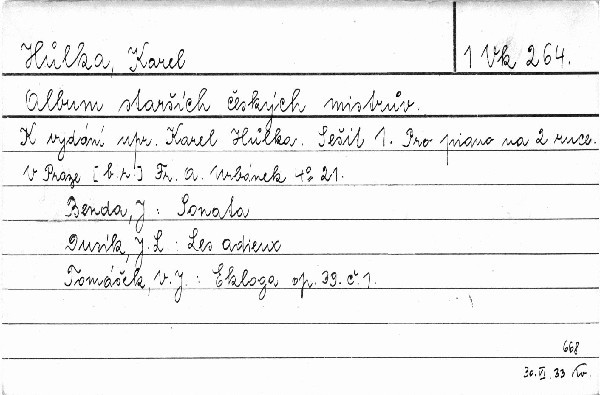 Hůlka, Karel
1 Vk 264.
Album starších českých mistrův.
K vydání upr. Karel Hůlka. Sešit 1. Pro piano na 2 ruce.
V Praze [b.r.] Fr. A. Urbánek 4° 21.
Benda, J : Sonata
Dusík, J. L : Les adieux
Tomášek, V. J. : Ekloga op. 39. č. 1.
668
30. VI. 33